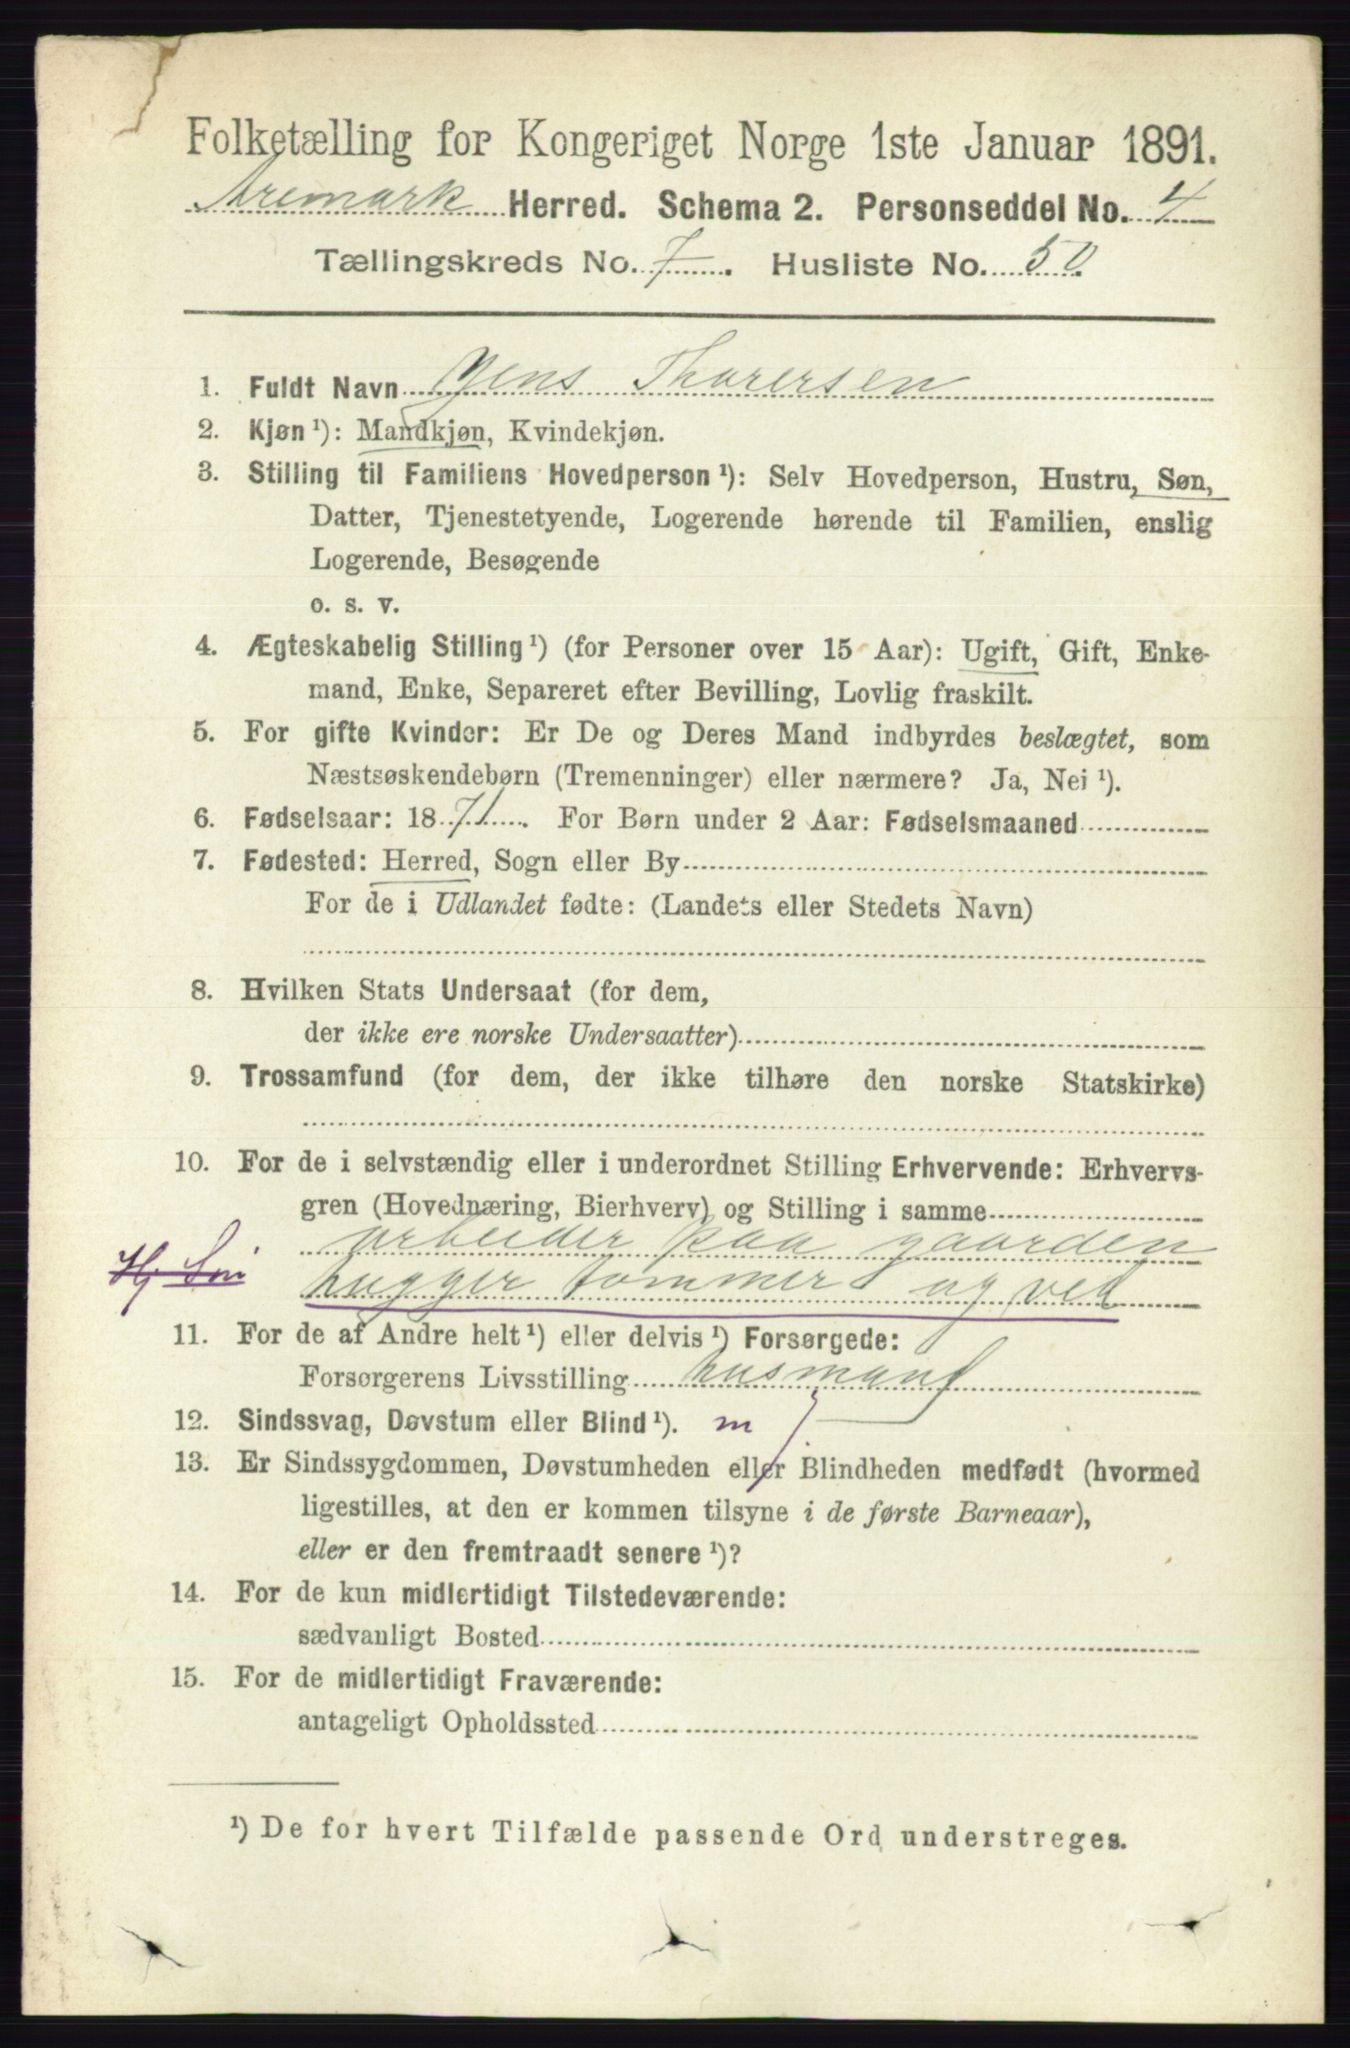 Folketælling for Kongeriget Norge 1ste Januar 1891.
Aremark Herred. Schema 2. Personseddel No. 4
Tællingskreds No. 7. Husliste No. 50
1. Fuldt Navn Jens Thorersen
2. Kjøn ¹): Mandkjøn, Kvindekjøn.
3. Stilling til Familiens Hovedperson ¹): Selv Hovedperson, Hustru, Søn,
Datter, Tjenestetyende, Logerende hørende til Familien, enslig
Logerende, Besøgende
o. s. v.
4. Ægteskabelig Stilling ¹) (for Personer over 15 Aar): Ugift, Gift, Enke-
mand, Enke, Separeret efter Bevilling, Lovlig fraskilt.
5. For gifte Kvinder: Er De og Deres Mand indbyrdes beslægtet, som
Næstsøskendebørn (Tremenninger) eller nærmere? Ja, Nei ¹).
6. Fødselsaar: 1871. For Børn under 2 Aar: Fødselsmaaned
7. Fødested: Herred, Sogn eller By
For de i Udlandet fødte: (Landets eller Stedets Navn)
8. Hvilken Stats Undersaat (for dem,
der ikke ere norske Undersaatter)
9. Trossamfund (for dem, der ikke tilhøre den norske Statskirke)
10. For de i selvstændig eller i underordnet Stilling Erhvervende: Erhvervs-
gren (Hovednæring, Bierhverv) og Stilling i samme
arbeider paa gaarden
Hj. Søn hugger tømmer og ved
11. For de af Andre helt ¹) eller delvis ¹) Forsørgede:
Forsørgerens Livsstilling husmand
12. Sindssvag, Døvstum eller Blind ¹). m
13. Er Sindssygdommen, Døvstumheden eller Blindheden medfødt (hvormed
ligestilles, at den er kommen tilsyne i de første Barneaar),
eller er den fremtraadt senere ¹)?
14. For de kun midlertidigt Tilstedeværende:
sædvanligt Bosted
15. For de midlertidigt Fraværende:
antageligt Opholdssted
¹) De for hvert Tilfælde passende Ord understreges.